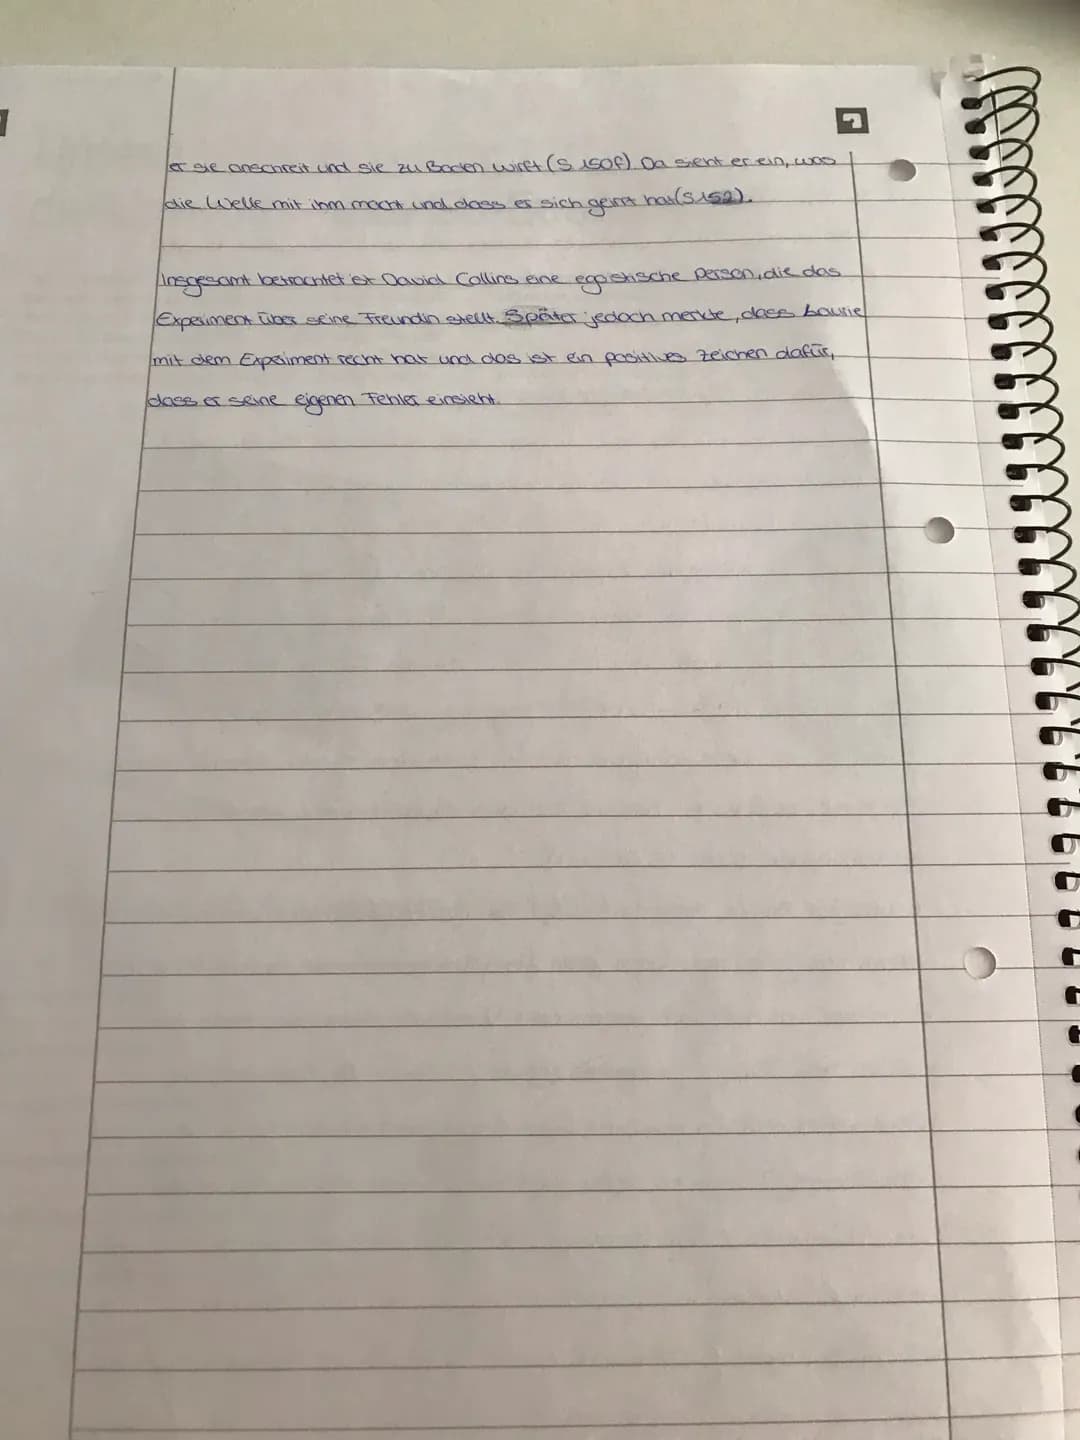 er sie anschreit und sie zu Boden wirft (S.150f). Da sieht er ein, was
die Welle mit ihm macht und dass er sich geirrt hat (S.152).
Insgesamt betrachtet ist David Collins eine egoistische Person, die das
Experiment über seine Freundin stellt. Später jedoch merkte, dass Laurie
mit dem Experiment recht hat und das ist ein positives Zeichen dafür,
dass er seine eigenen Fehler einsieht.